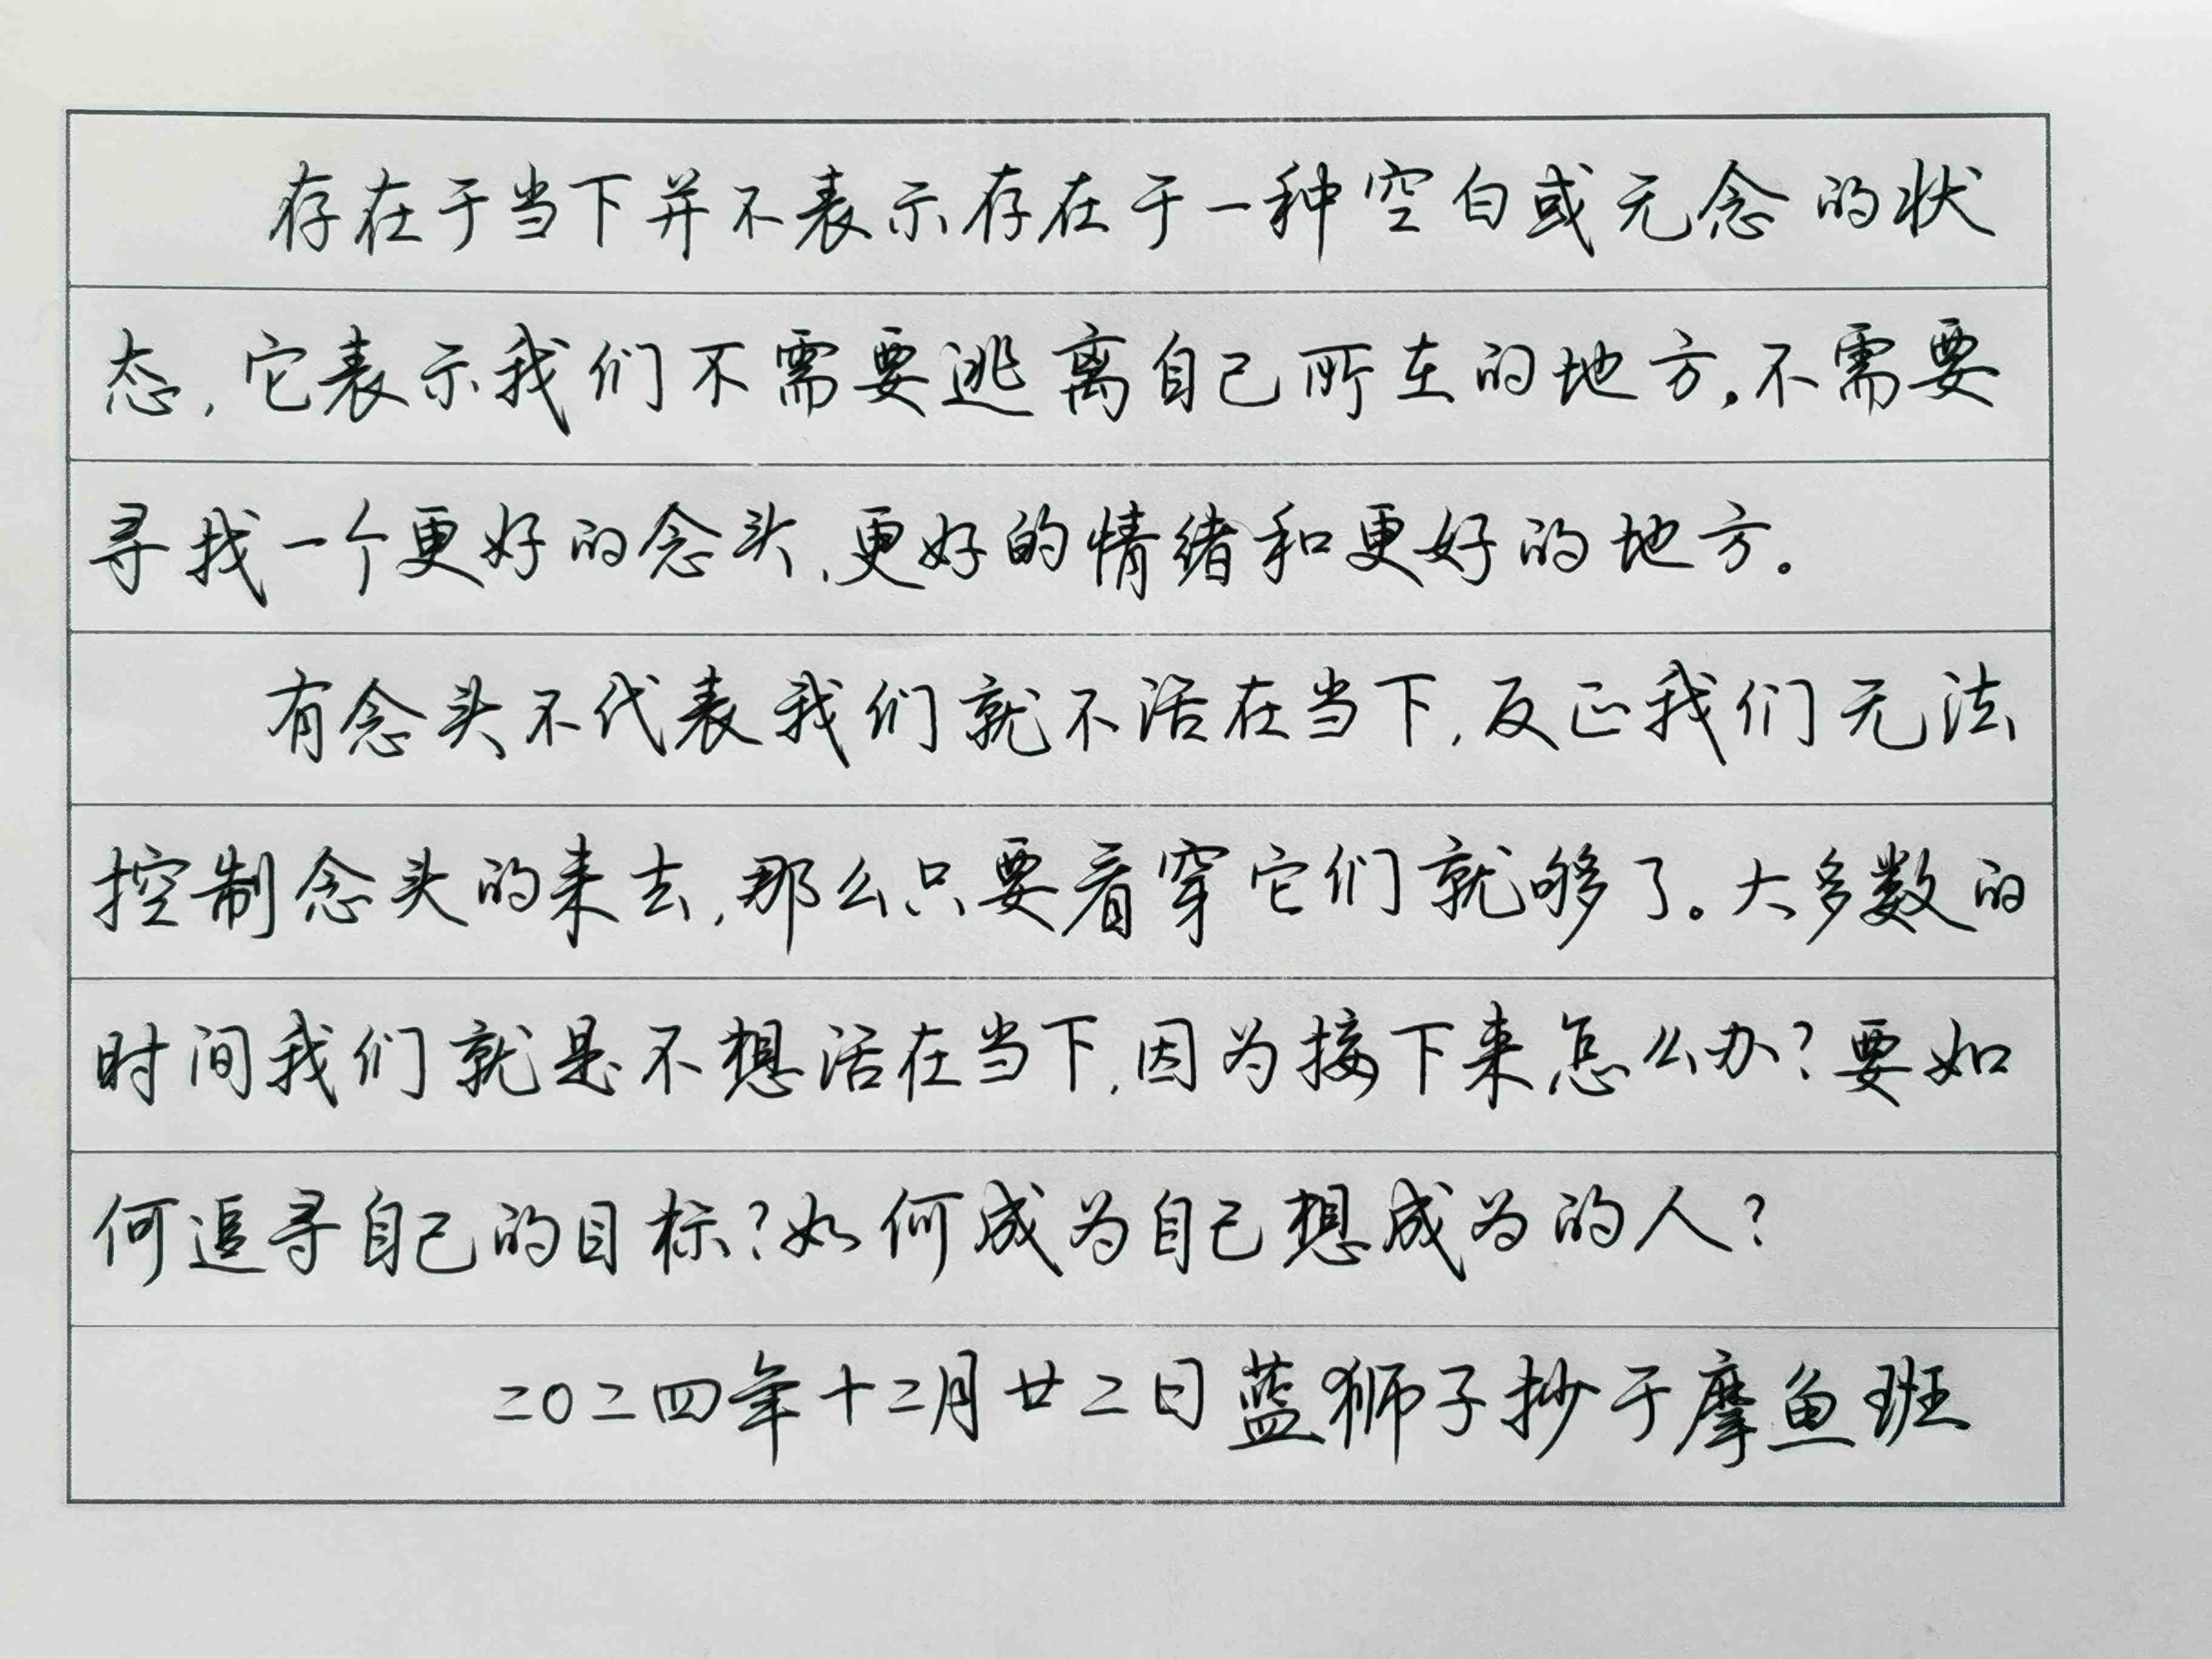 存在于当下并不表示存在于一种空白或无念的状
态,它表示我们不需要逃离自己所在的地方,不需要
寻找一个更好的念头、更好的情绪和更好的地方。
有念头不代表我们就不活在当下,反正我们无法
控制念头的来去,那么只要看穿它们就够了。大多数的
时间我们就是不想活在当下,因为接下来怎么办?要如
何追寻自己的目标?如何成为自己想成为的人?
二〇二四年十二月廿二日蓝狮子抄于摩鱼班